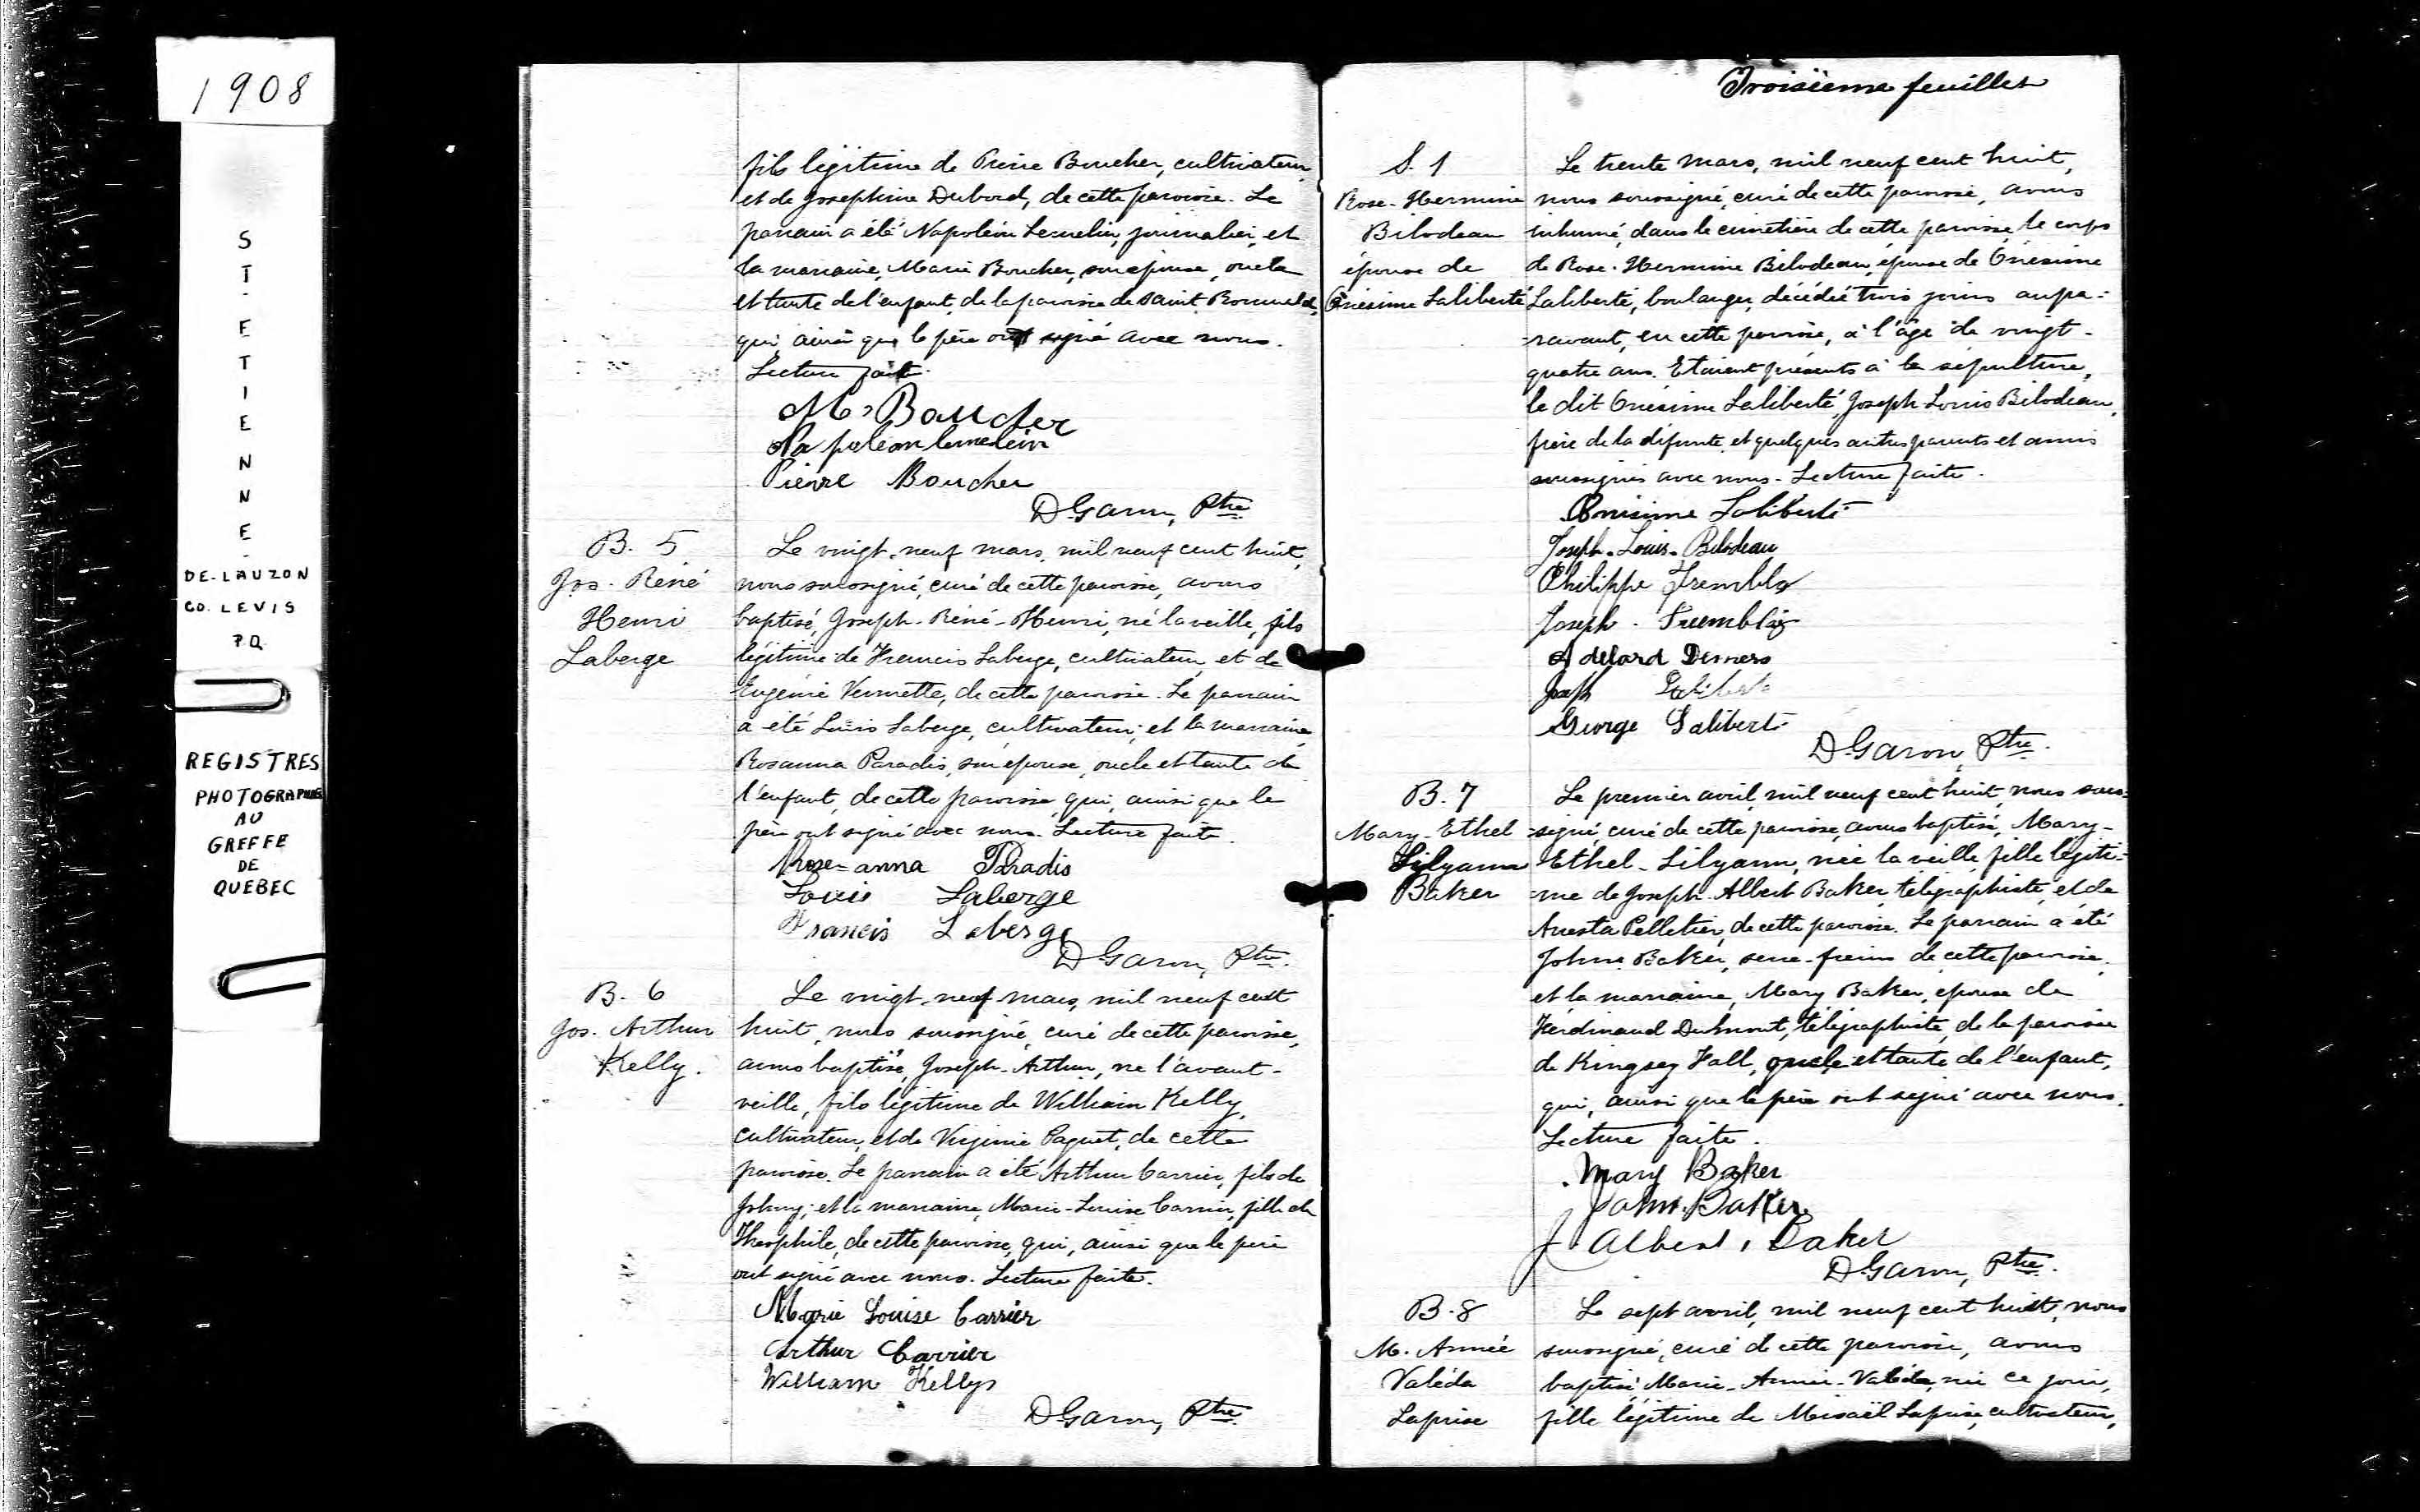 1908
ST-ETIENNE-
DE-LAUZON
CO. LEVIS
P.Q.
REGISTRES
PHOTOGRAPHIES
AU
GREFFE
DE
QUEBEC
fils légitime de Pierre Boucher, cultivateur,
et de Josephine Dubord, de cette paroisse. Le
parrain a été Napoléon Lemelin, journalier, et
la marraine, Marie Boucher, son épouse, oncle
et tante de l'enfant, de la paroisse de Saint Romuald,
qui ainsi que le père ont signé avec nous.
Lecture faite.
M. Boucher
Napoléon lemelin
Pierre Boucher
D Garon, Ptre
B. 5
Jos. René
Henri
Laberge
Le vingt-neuf mars, mil neuf cent huit,
nous soussigné, curé de cette paroisse, avons
baptisé, Joseph-René-Henri, né la veille, fils
légitime de Francis Laberge, cultivateur, et de
Eugénie Vermette, de cette paroisse. Le parrain
a été Louis Laberge, cultivateur, et la marraine,
Rosanna Paradis, son épouse, oncle et tante de
l'enfant, de cette paroisse, qui, ainsi que le
père ont signé avec nous. Lecture faite.
Rose-anna Paradis
Louis Laberge
Francis Laberge
D Garon, Ptre.
B. 6
Jos. Arthur
Kelly.
Le vingt-neuf mars, mil neuf cent
huit, nous soussigné, curé de cette paroisse,
avons baptisé, Joseph-Arthur, né l'avant-
veille, fils légitime de William Kelly,
cultivateur, et de Virginie Paquet, de cette
paroisse. Le parrain a été Arthur Carrier, fils de
Johny; et la marraine, Marie-Louise Carrier, fille de
Théophile, de cette paroisse, qui, ainsi que le père
ont signé avec nous. Lecture faite.
Marie Louise Carrier
Arthur Carrier
William Kellys
D Garon, Ptre.
Troisième feuillet
S. 1
Rose-Hermine
Bilodeau
épouse de
Onésime Laliberté
Le trente mars, mil neuf cent huit,
nous soussigné, curé de cette paroisse, avons
inhumé, dans le cimetière de cette paroisse, le corps
de Rose-Hermine Bilodeau, épouse de Onésime
Laliberté, boulanger, décédée trois jours aupa-
-ravant, en cette paroisse, à l'âge de vingt-
quatre ans. Etaient présents à la sépulture,
le dit Onésime Laliberté, Joseph-Louis Bilodeau,
frère de la défunte, et quelques autres parents et amis
soussignés avec nous. Lecture faite.
Onisime Laliberté
Joseph-Louis-Bilodeau
Philippe Trembla
Joseph Tremblay
Adelard Demers
Joseph Laliberte
George Laliberte
D Garon, Ptre.
B. 7
Mary-Ethel
Lilyann
Baker
Le premier avril, mil neuf cent huit, nous sous-
-signé, curé de cette paroisse, avons baptisé, Mary-
Ethel-Lilyann, née la veille, fille légiti-
-me de Joseph-Albert Baker, télégraphiste, et de
Anesta Pelletier, de cette paroisse. Le parrain a été
John Baker, serre-freins de cette paroisse,
et la marraine, Mary Baker, épouse de
Ferdinand Dumont, télégraphiste, de la paroisse
de Kingsey Fall, oncle et tante de l'enfant,
qui, ainsi que le père ont signé avec nous.
Lecture faite.
Mary Baker
John Baker
J Albert Baker
D Garon, Ptre.
B. 8
M. Annie
Valéda
Laprise
Le sept avril, mil neuf cent huit, nous
soussigné, curé de cette paroisse, avons
baptisé, Marie-Annie-Valéda, née ce jour,
fille légitime de Misaël Laprise, cultivateur,